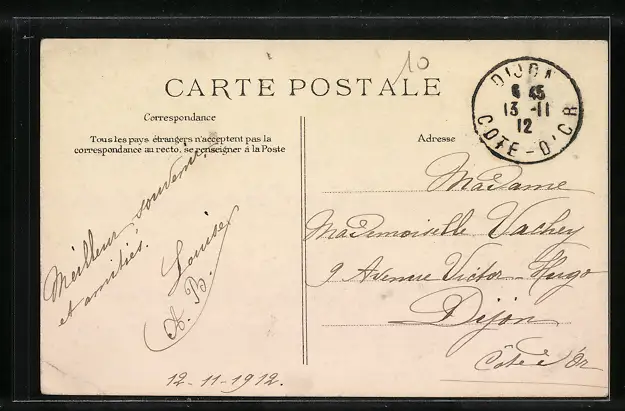 10
CARTE POSTALE
DIJON
6 45
13 -11
12
COTE-D'OR
Correspondance
Tous les pays étrangers n'acceptent pas la
correspondance au recto, se renseigner à la Poste
Adresse
Meilleur souvenir
et amitiés.
Louise
A. B.
12-11-1912.
Madame
Mademoiselle Vachey
9 Avenue Victor-Hugo
Dijon
Côte d'Or